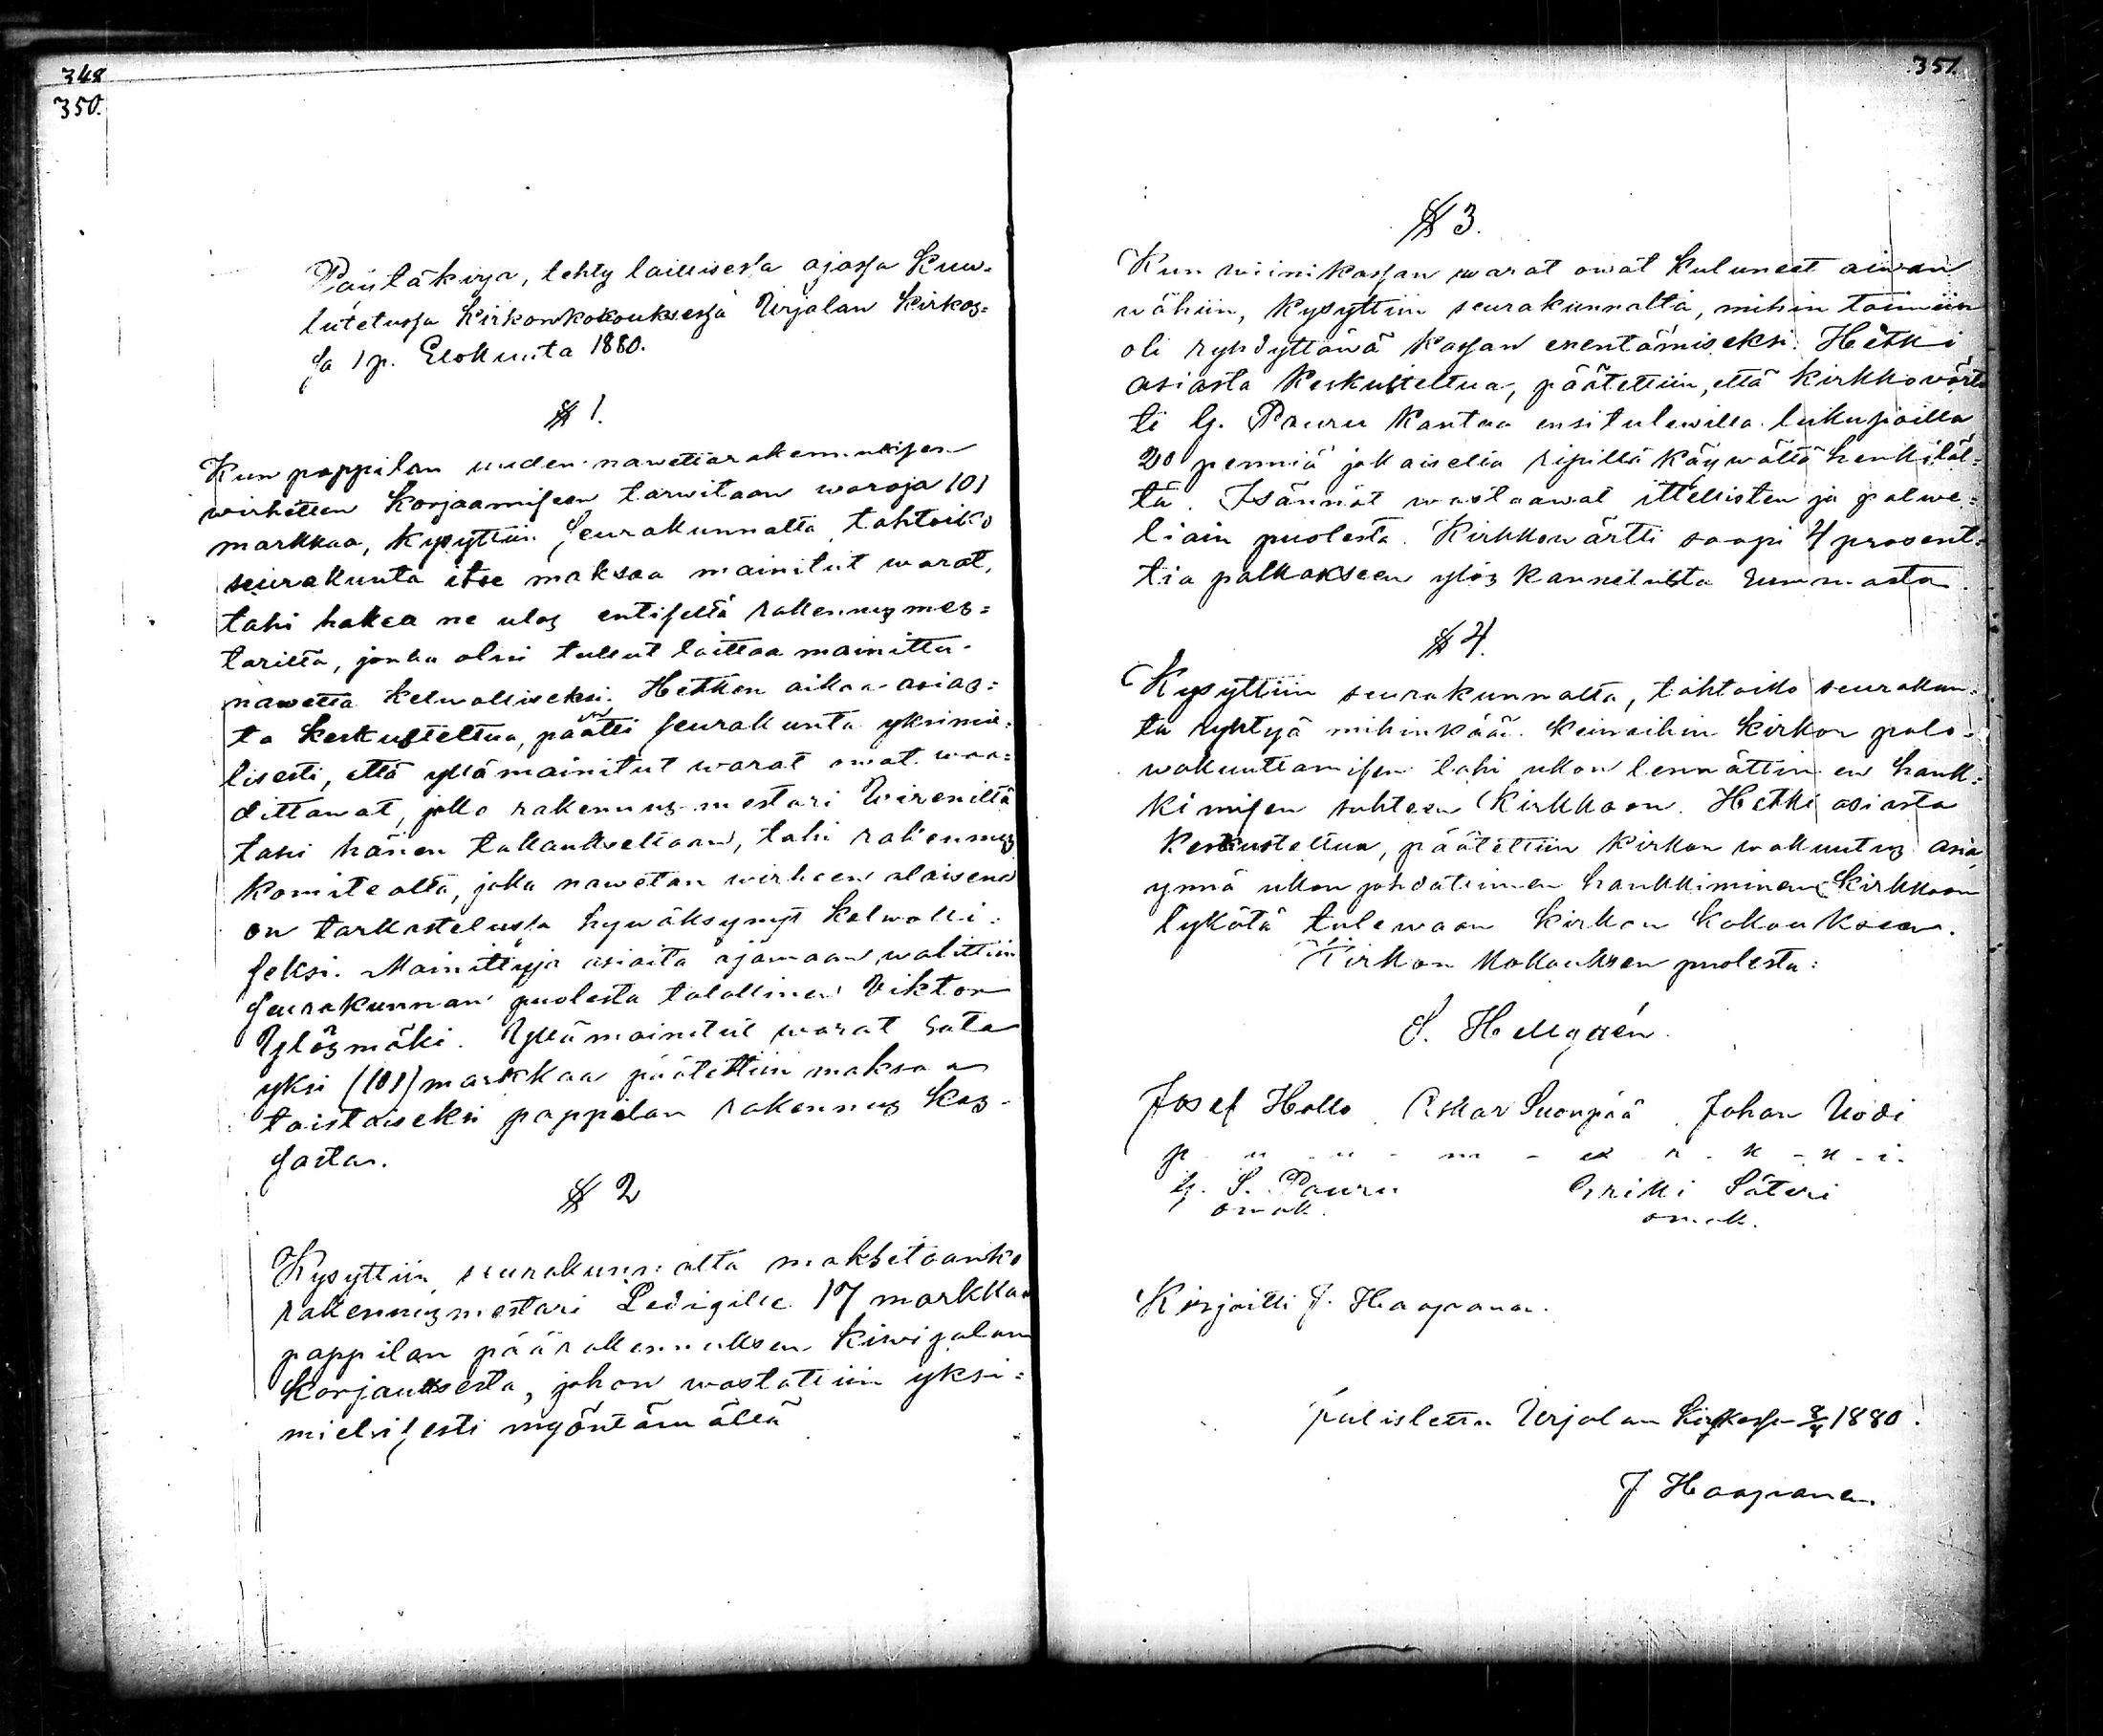 348
350.
Pöytäkirja, tehty laillisessa ajassa kuu-
lutetussa Kirkonkokouksessa Urjalan Kirkos=
sa 1 p. Elokuuta 1880.
§ 1.
Kun pappilan uuden nawettarakennuksen
wirheitten korjaamiseen tarwitaan waroja 101
markkaa, kysyttiin Seurakunnalta tahtoiko
seurakunta itse maksaa mainitut warat,
tahi hakea ne ulos entiseltä rakennusmes=
tarilta, jonka olisi tullut laittaa mainittu
nawetta kelwolliseksi. Hetken aikaa asias=
ta keskusteltua, päätti seurakunta yksimie=
lisesti, että yllämainitut warat owat waa=
dittawat, joko rakennus mestari Wireniltä
tahi hänen takaukseltaan, tahi rakennus
komitealta, joka nawetan wirheen alaisena
on tarkastelussa hywäksynyt kelwolli=
seksi. Mainittuja asioita ajamaan walittiin
Seurakunnan puolesta talollinen Viktor
Ylösmäki. Yllämainitut warat sata
yksi (101) markkaa päätettiin maksaa
toistaiseksi pappilan rakennus kas-
sasta.
§ 2
Kysyttiin seurakunnalta maksetaanko
rakennusmestari Ledigille 17 markkaa
pappilan päärakennuksen kiwijalan
korjauksesta, johon wastattiin yksi=
mielisesti myöntämällä
351.
§ 3.
Kun wiinikassan warat owat kuluneet aiwan
wähiin, kysyttiin seurakunnalta, mihin toimiin
oli ryhdyttäwä kassan enentämiseksi. Hetki
asiasta keskusteltua, päätettiin, että kirkkowärt
ti G. Pauru kantaa ensitulewilla lukusioilla
20 penniä jokaiselta ripillä käywältä henkilöl=
tä. Isännät wastaawat ittellisten ja palwe=
liain puolesta. Kirkkowärtti saapi 4 prosent=
tia palkakseen ylös kannetusta summasta.
§ 4.
Kysyttiin seurakunnalta, tahtoiko seurakun=
ta ryhtyä mihinkään keinoihin kirkon palo-
wakuuttamisen tahi ukon lennättimen hank=
kimisen suhteen Kirkkoon. Hetki asiasta
keskusteltua, päätettiin kirkon wakuutus asia,
ynnä ukon johdattimen hankkiminen Kirkkoon
lykätä tulewaan kirkon kokoukseen.
Kirkon kokouksen puolesta:
S. Hellgrén.
Josef Hollo Oskar Suonpää Johan Uodi
p - u - u - m - e - r - k - k - i -
G. S. Pauru Erikki Säteri
omak. omak.
Kirjoitti J. Haapanen.
Julistettu Urjalan Kirkossa 8/8 1880.
J Haapanen.